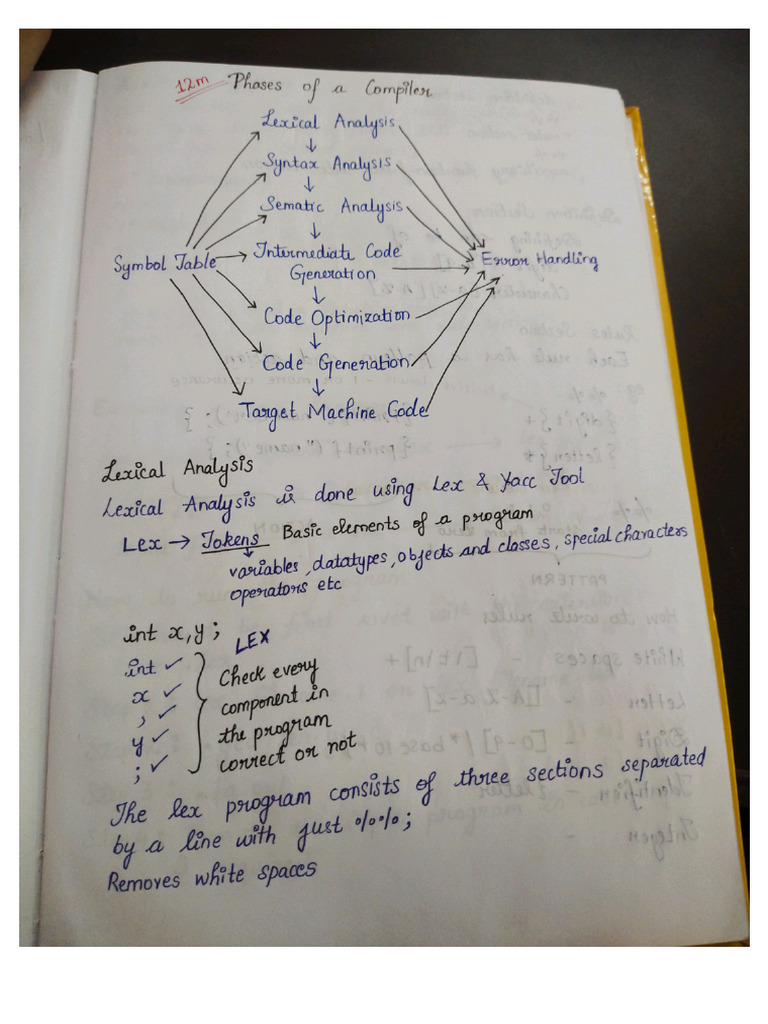 12m Phases of a Compiler
Lexical Analysis
↓
Syntax Analysis
↓
Sematic Analysis
↓
Symbol Table
Intermediate Code
Generation
Error Handling
↓
Code Optimization
↓
Code Generation
↓
Target Machine Code
Lexical Analysis
Lexical Analysis is done using Lex & Yacc Tool
Lex → Tokens Basic elements of a program
variables, datatypes, objects and classes, special characters
operators etc
int x,y; LEX
int ✓
x ✓
, ✓
y ✓
; ✓
Check every
component in
the program
correct or not
The lex program consists of three sections separated
by a line with just %%;
Removes white spaces